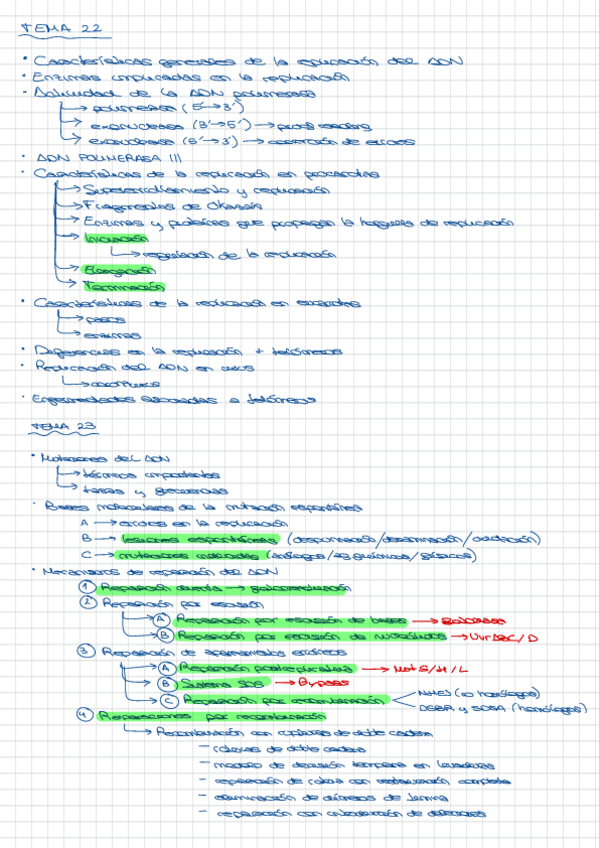 TEMA 22
· Características generales de la replicación del ADN
· Enzimas implicadas en la replicación
· Actividad de la ADN polimerasa
→ polimerasa (5'→3')
→ exonucleasa (3'→5') → proof reading
→ exonucleasa (5'→3') → corrección de errores
· ADN POLIMERASA III
· Características de la replicación en procariotas
→ Superenrollamiento y replicación
→ Fragmentos de Okazaki
→ Enzimas y proteínas que propagan la horquilla de replicación
→ Iniciación
→ regulación de la replicación
→ Elongación
→ Terminación
· Características de la replicación en eucariotas
→ pasos
→ enzimas
· Diferencias en la replicación + telómeros
· Replicación del ADN en virus
→ coronavirus
· Enfermedades asociadas a telómeros
TEMA 23
· Mutaciones del ADN
→ términos importantes
→ tasas y
· Bases moleculares de la mutación espontánea
A → errores en la replicación
B → lesiones espontáneas (despurinación/desaminación/oxidación)
C → mutaciones inducidas (análogos/ag químicos/físicos)
· Mecanismos de reparación del ADN
① Reparación directa → fotorreactivación
② Reparación por escisión
Ⓐ Reparación por escisión de bases → glicosilasas
Ⓑ Reparación por escisión de nucleótidos → Uvr ABC/D
③ Reparación de apareamientos erróneos
Ⓐ Reparación postreplicativa → Mut S/H/L
Ⓑ Sistema SOS → Bypass
Ⓒ Reparación por recombinación
NHEJ (no homólogos)
DSBR y SDSA (homólogos)
④ Reparaciones por recombinación
→ Recombinación con rupturas de doble cadena
- roturas de doble cadena
- modelo de escisión temprana en levaduras
- reparación de rotura con restauración completa
- eliminación de dímeros de timina
- reparación con